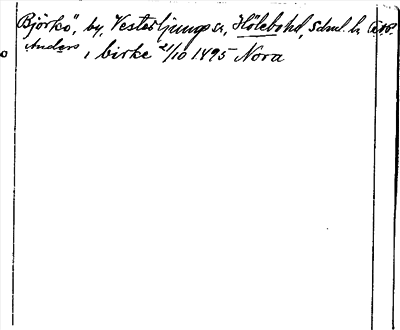 Björkö, by, Vesterljungs sn, Hölebohd, Sdml. h.
Anders i birke 21/10 1495 Nora